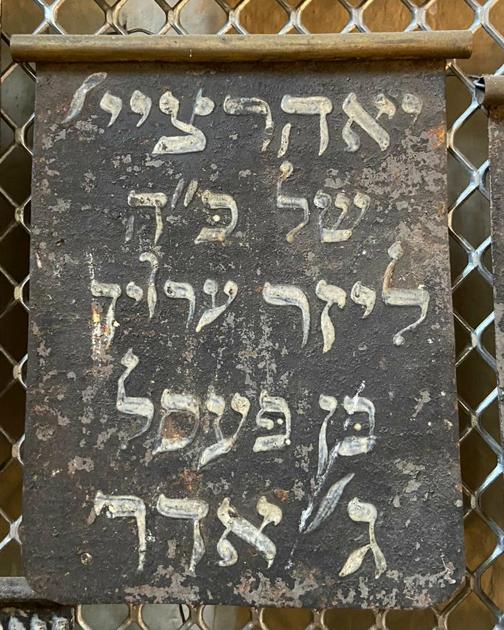 יאהרציי׳
של כּ״ה
ליזר ערליך
בּן פּעסל
ג׳ אדר